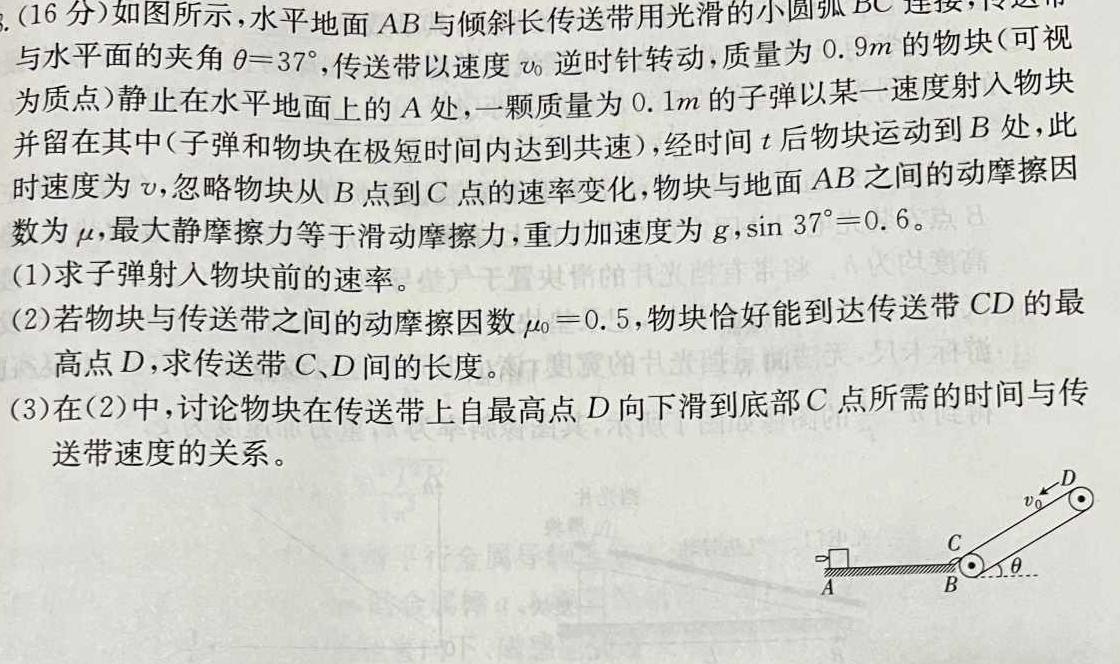 (16 分)如图所示,水平地面 AB 与倾斜长传送带用光滑的小圆弧 BC 连接,传送带
与水平面的夹角 θ=37°,传送带以速度 v₀ 逆时针转动,质量为 0.9m 的物块(可视
为质点)静止在水平地面上的 A 处,一颗质量为 0.1m 的子弹以某一速度射入物块
并留在其中(子弹和物块在极短时间内达到共速),经时间 t 后物块运动到 B 处,此
时速度为 v,忽略物块从 B 点到 C 点的速率变化,物块与地面 AB 之间的动摩擦因
数为 μ,最大静摩擦力等于滑动摩擦力,重力加速度为 g,sin 37°=0.6。
(1)求子弹射入物块前的速率。
(2)若物块与传送带之间的动摩擦因数 μ₀=0.5,物块恰好能到达传送带 CD 的最
高点 D,求传送带 C、D 间的长度。
(3)在(2)中,讨论物块在传送带上自最高点 D 向下滑到底部 C 点所需的时间与传
送带速度的关系。
D
v₀
C
θ
A
B